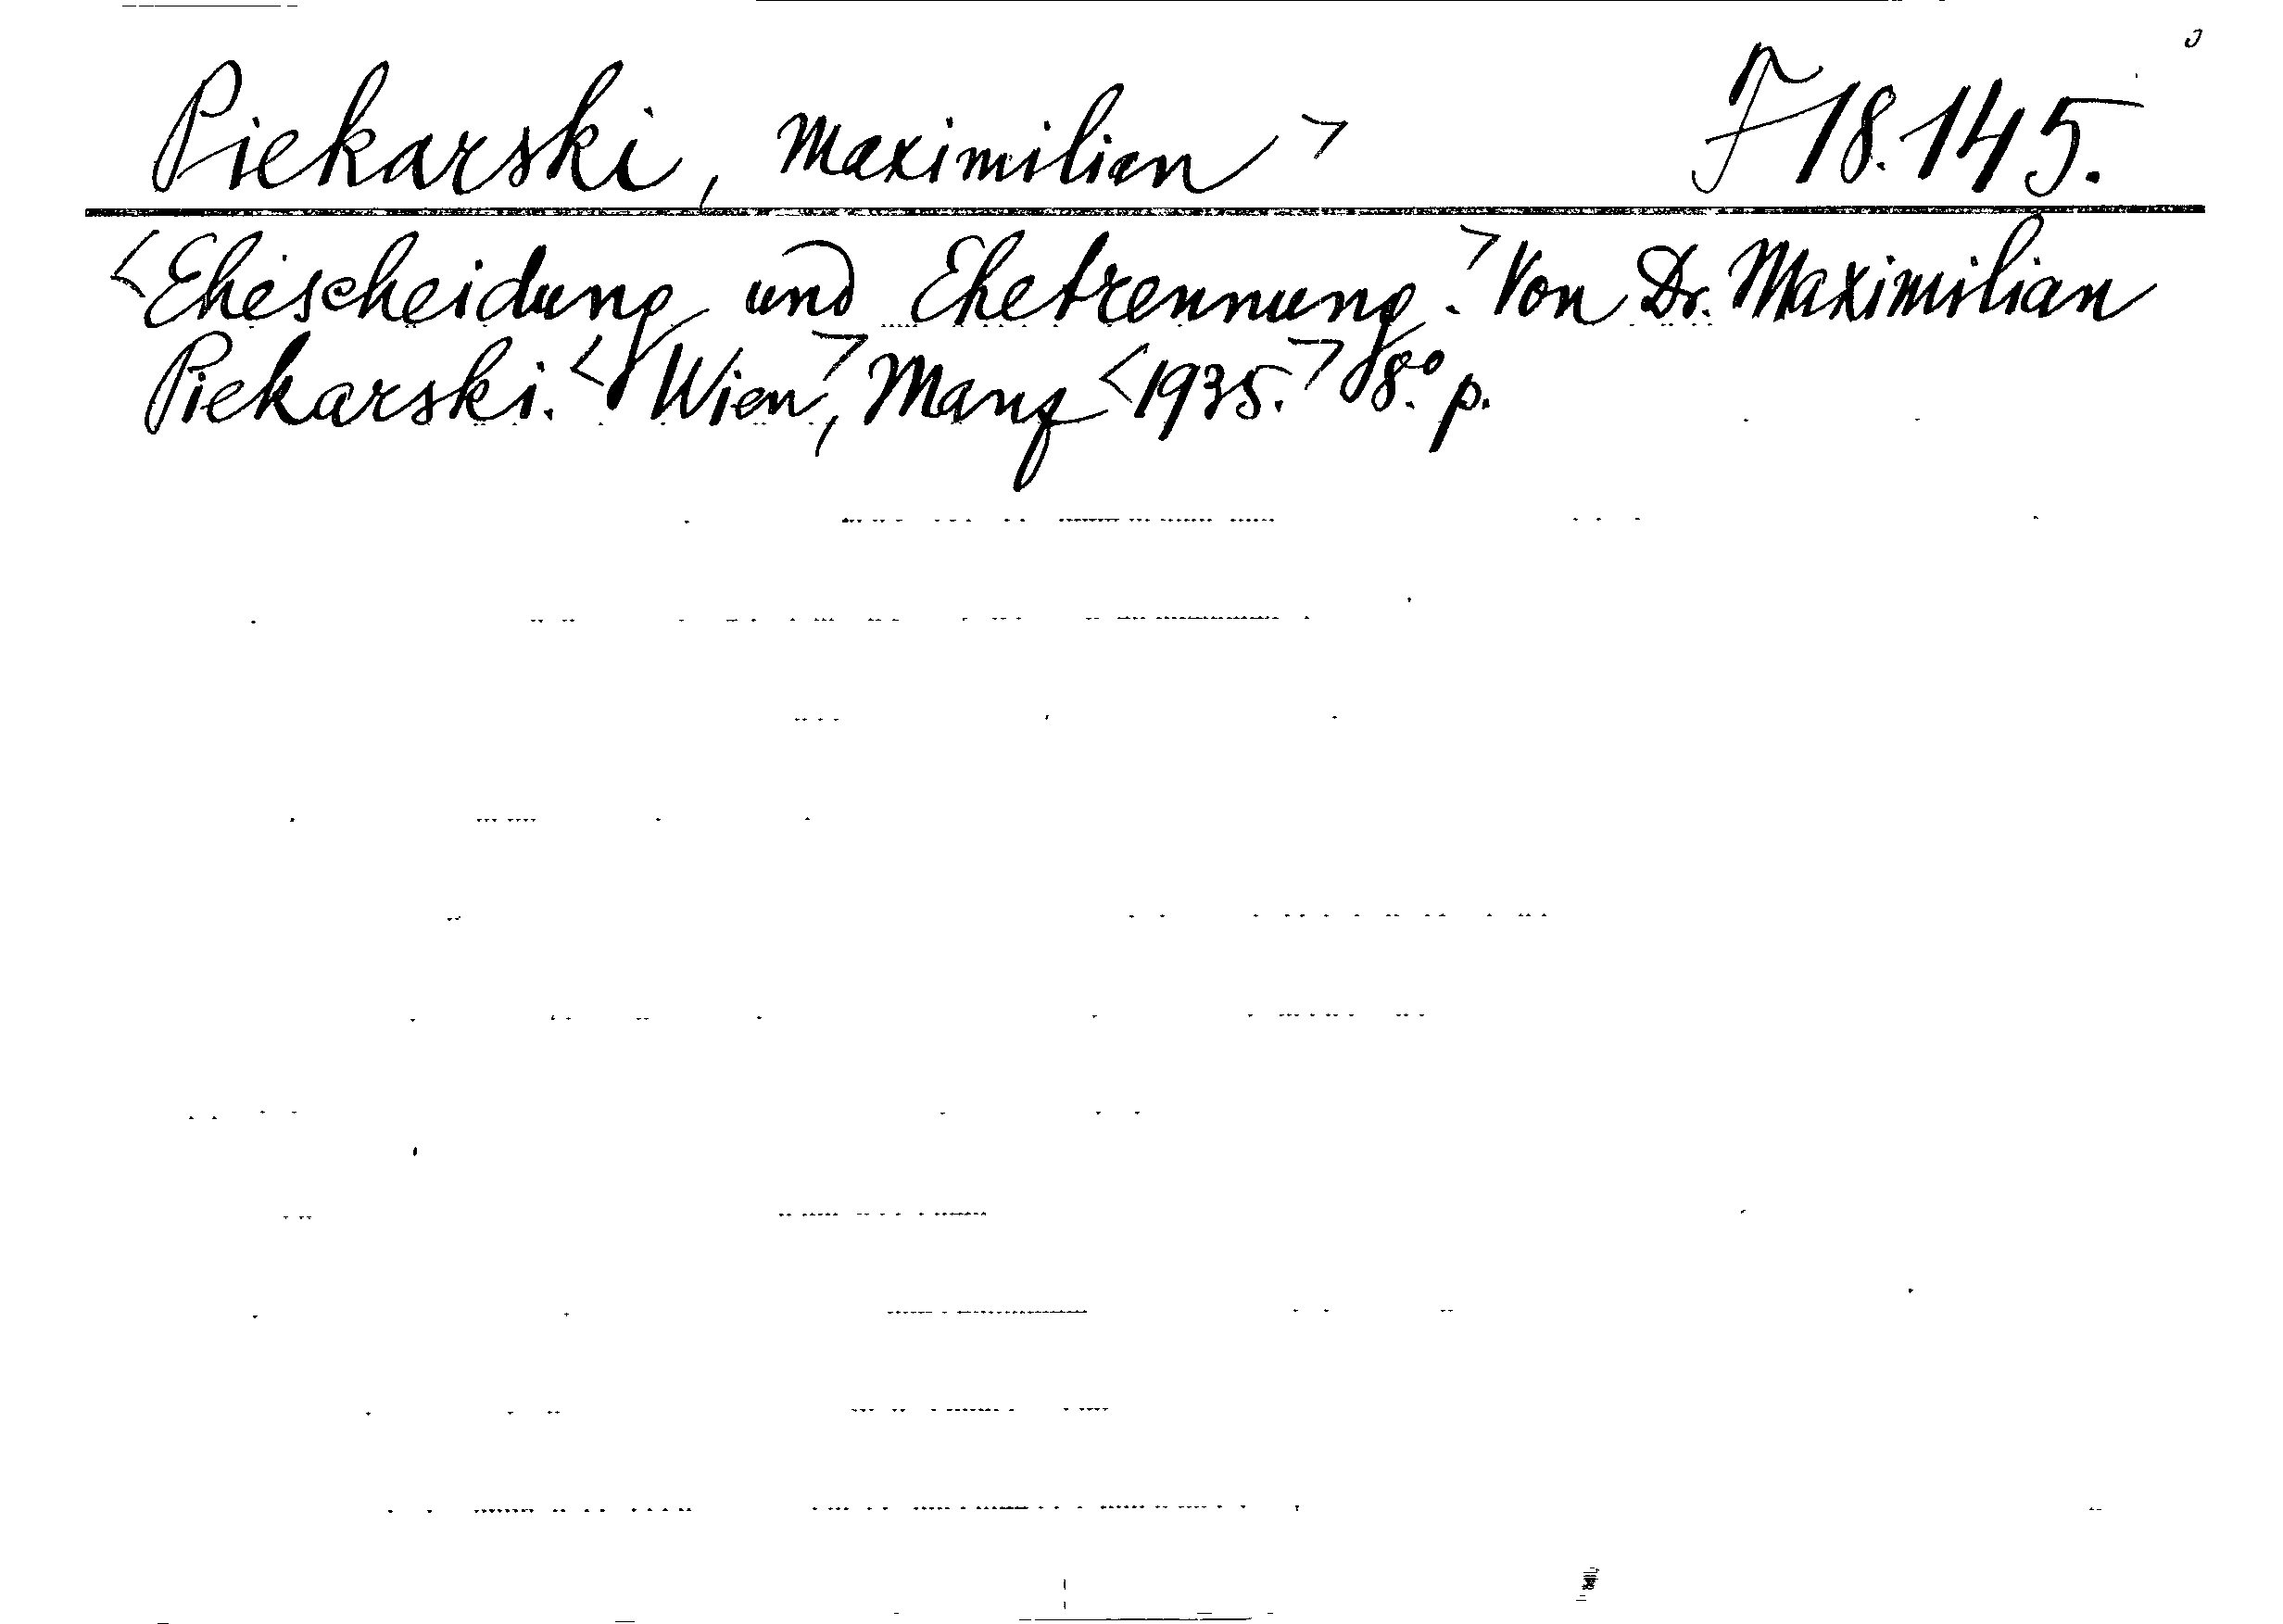 Piekarski, Maximilian > J 18.145.
<Ehescheidung und Ehetrennung.> Von Dr. Maximilian
Piekarski. < Wien,> Manz <1935.> 8.° p.